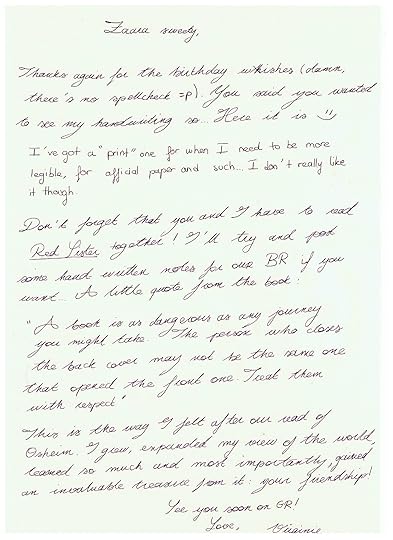 Zaara sweety,
Thanks again for the birthday whishes (damn,
there's no spellcheck =p). You said you wanted
to see my handwriting so... Here it is :)
I've got a "print" one for when I need to be more
legible, for official paper and such... I don't really like
it though.
Don't forget that you and I have to read
Red Sister together! I'll try and post
some hand written notes for our BR if you
want... A little quote from the book:
"A book is as dangerous as any journey
you might take. The person who closes
the back cover may not be the same one
that opened the front one. Treat them
with respect"
This is the way I felt after our read of
Osheim. I grew, expanded my view of the world,
learned so much and most importantly, gained
an invaluable treasure from it: your friendship!
See you soon on GR!
Love,